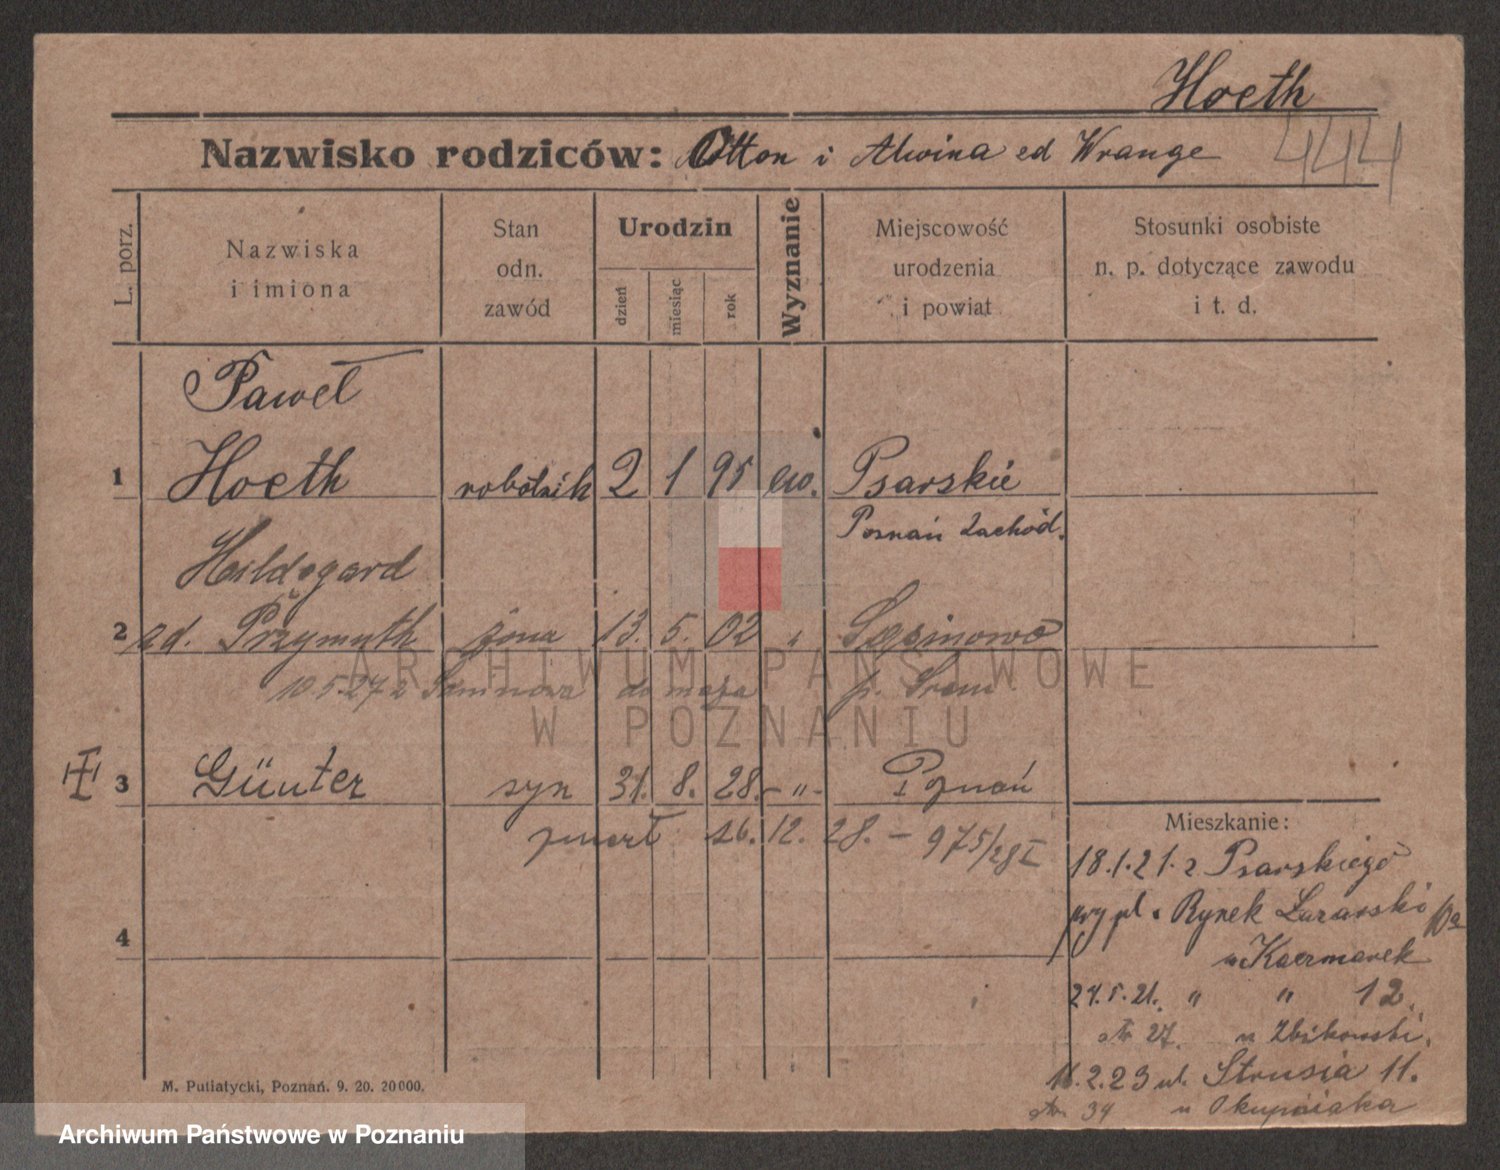 Hoeth
Nazwisko rodziców: Otton i Alwina zd Wrange
444
L. porz.
Nazwiska i imiona
Stan odn. zawód
Urodzin
dzień
miesiąc
rok
Wyznanie
Miejscowość urodzenia i powiat
Stosunki osobiste n. p. dotyczące zawodu i t. d.
Paweł
1 Hoeth robotnik 2 1 95 ew. Psarskie
Poznań Zachód.
Hildegard
2 zd. Przymuth żona 13. 5. 02 "
10.5.27 z do maja p. Śrem
3 Günter syn 31. 8. 28. - " - Poznań
zmarł 26. 12. 28. - 975/28 I
Mieszkanie:
18.1.21. z Psarskiego
Rynek Łazarski
u Kaczmarek
4
24.5.21. " " 12.
str 27. u Zbikowski.
2.23 ul. Strusia 11.
str 34 u
M. Putiatycki, Poznań. 9. 20. 20000.
ARCHIWUM PAŃSTWOWE
W POZNANIU
Archiwum Państwowe w Poznaniu